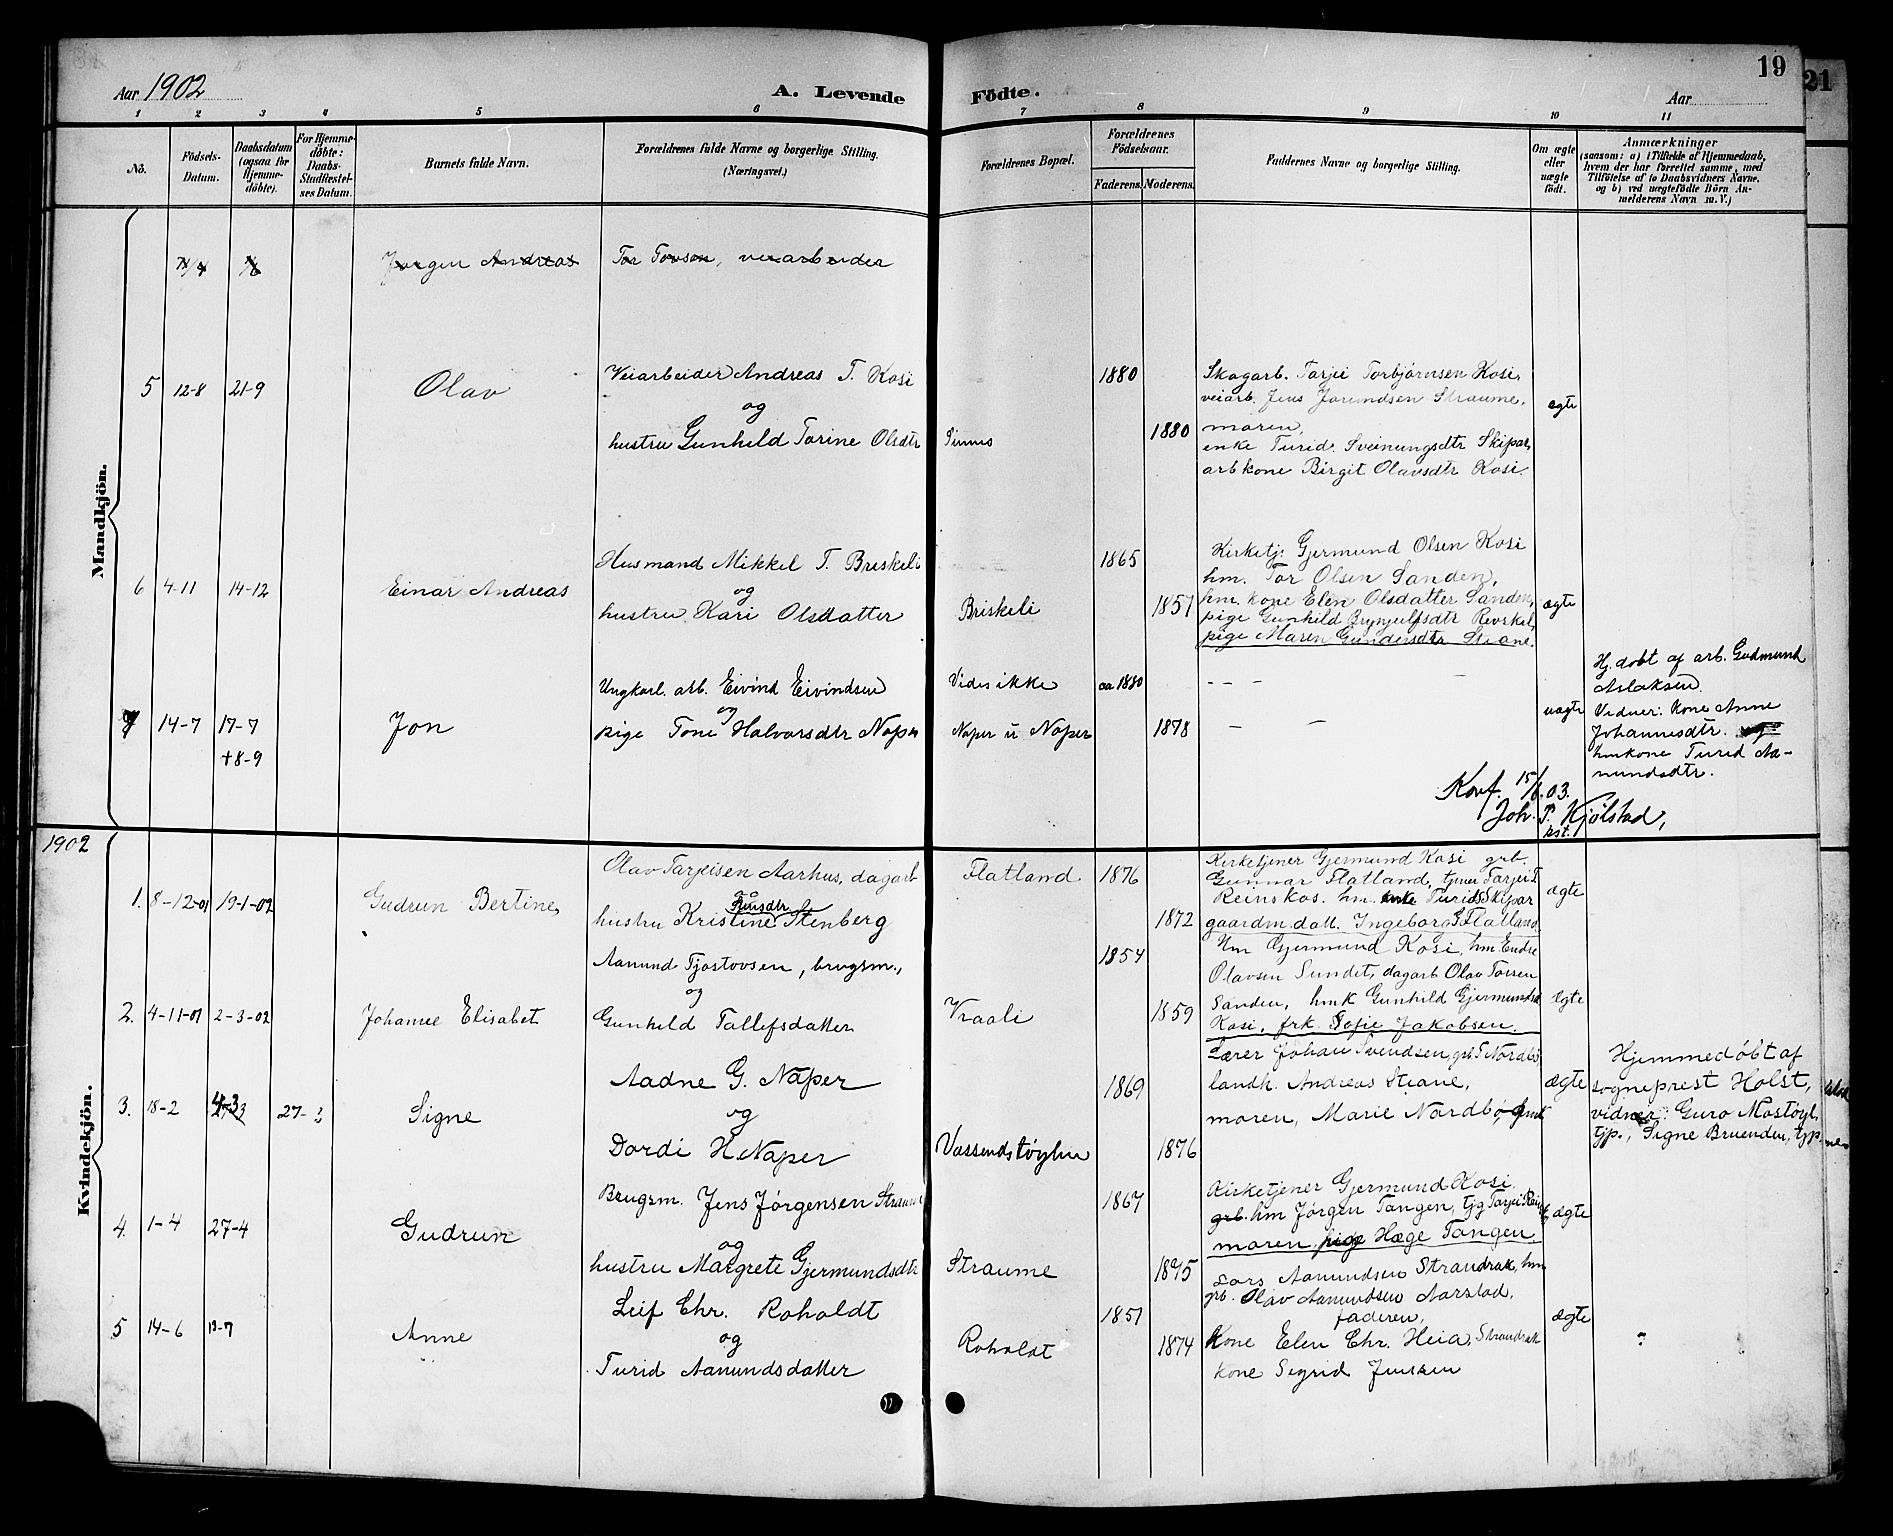 19
21
Aar 1902
A. Levende
Födte.
Aar
1 2 3 4 5 6 7 8 9 10 11
No.
Födsels-
Datum.
Daabsdatum
(ogsaa for
Hjemme-
döbte).
For Hjemme-
döbte:
Daabs-
Stadfæstel-
ses Datum.
Barnets fulde Navn.
Forældrenes fulde Navne og borgerlige Stilling.
(Næringsvei.)
Forældrenes Bopæl.
Forældrenes
Födselsaar.
Faderens. Moderens.
Faddernes Navne og borgerlige Stilling.
Om ægte
eller
uægte
födt.
Anmærkninger
(saasom: a) i Tilfælde af Hjemmedaab,
hvem der har forrettet samme, med
Tilföielse af to Daabsvidners Navne,
og b) ved uægtefödte Börn An-
melderens Navn m. V.)
Mandkjön.
Jørgen Andreas
Tor Tovson, veiarbeider
5 12-8 21-9
Olav
Veiarbeider Andreas T. Kosi
og
hustru Gunhild Torine Olsdtr
Sinnes
1880
1880
Skogarb. Tarjei Torbjørnsen Kosi,
veiarb. Jens Jørundsen Straume.
moren,
enke Turid Sveinungsdtr Skipar,
arbkone Birgit Olavsdtr Kosi.
ægte
6 4-11 14-12
Einar Andreas
Husmand Mikkel T. Briskeli
og
hustru Kari Olsdatter
Briskeli
1865
1857
Kirketj. Gjermund Olsen Kosi
hm. Tor Olsen Sanden,
hm. kone Elen Olsdatter Sanden,
pige Gunhild Brynjulfsdtr
pige Maren Gundersdtr
ægte
7 14-7 17-7
+8-9
Jon
Ungkarl. arb. Eivind Eivindsen
og
pige Tone Halvorsdtr Naper
Vides ikke
Naper u Naper
ca 1880
1878
uægte
Hj. døbt af arb. Gudmund
Aslaksen.
Vidner: Kone Anne
Johannesdtr. og
hmkone Turid Aa-
mundsdtr.
Konf. 15/6.03.
Joh. P. Kjølstad,
kst.
1902
Kvindekjön.
1. 8-12-01 19-1-02
Gudrun Bertine
Olav Tarjeisen Aarhus, dagarb
hustru Kristine Stenberg
Flatland
1876
1872
Kirketjener Gjermund Kosi grb.
Gunnar Flatland, tjener Tarjei T
Reinskos. hm. enke Turid S Skipar
gaardm. datt. Ingeborg G Flatland.
ægte
2. 4-11-01 2-3-02
Johanne Elisabet
Aamund Tjostovsen, brugsm.,
og
Gunhild Tallefsdatter
Vraali
1854
1859
Hm Gjermund Kosi, hm. Endre
Olavsen Sundet, dagarb Olav Torsen
Sanden, hmk Gunhild Gjermundsd
Kosi, frk. Sofie Jakobsen.
ægte
3. 18-2 4-3 27-3
Signe
Aadne G. Naper
og
Dordi H Naper
Vassendstøylen
1869
1876
Lærer Johan Svendsen, grb T Nordbø,
landh. Andreas Stiane,
moren, Marie Nordbø,
ægte
Hjemmedøbt af
sogneprest Holst,
vidner: Guro Mostøyl,
tjp., Signe Bruenden, tjp.
4. 1-4 27-4
Gudrun
Brugsm. Jens Jørgensen Straume
og
hustru Margrete Gjermundsdtr
Straume
1867
1875
Kirketjener Gjermund Kosi.
grb. hm Jørgen Tangen, tjg Tarjei
moren. pige Hæge Tangen.
ægte
5 14-6 13-7
Anne
Leif Chr. Roholdt
og
Turid Aamundsdatter
Roholdt
1851
1874
Lars Aamundsen Strandrak, hm
grb. Olav Aamundsen Aarstad,
faderen,
kone Elen Chr. Heia, Strandrak
kone Sigrid Jensen
ægte